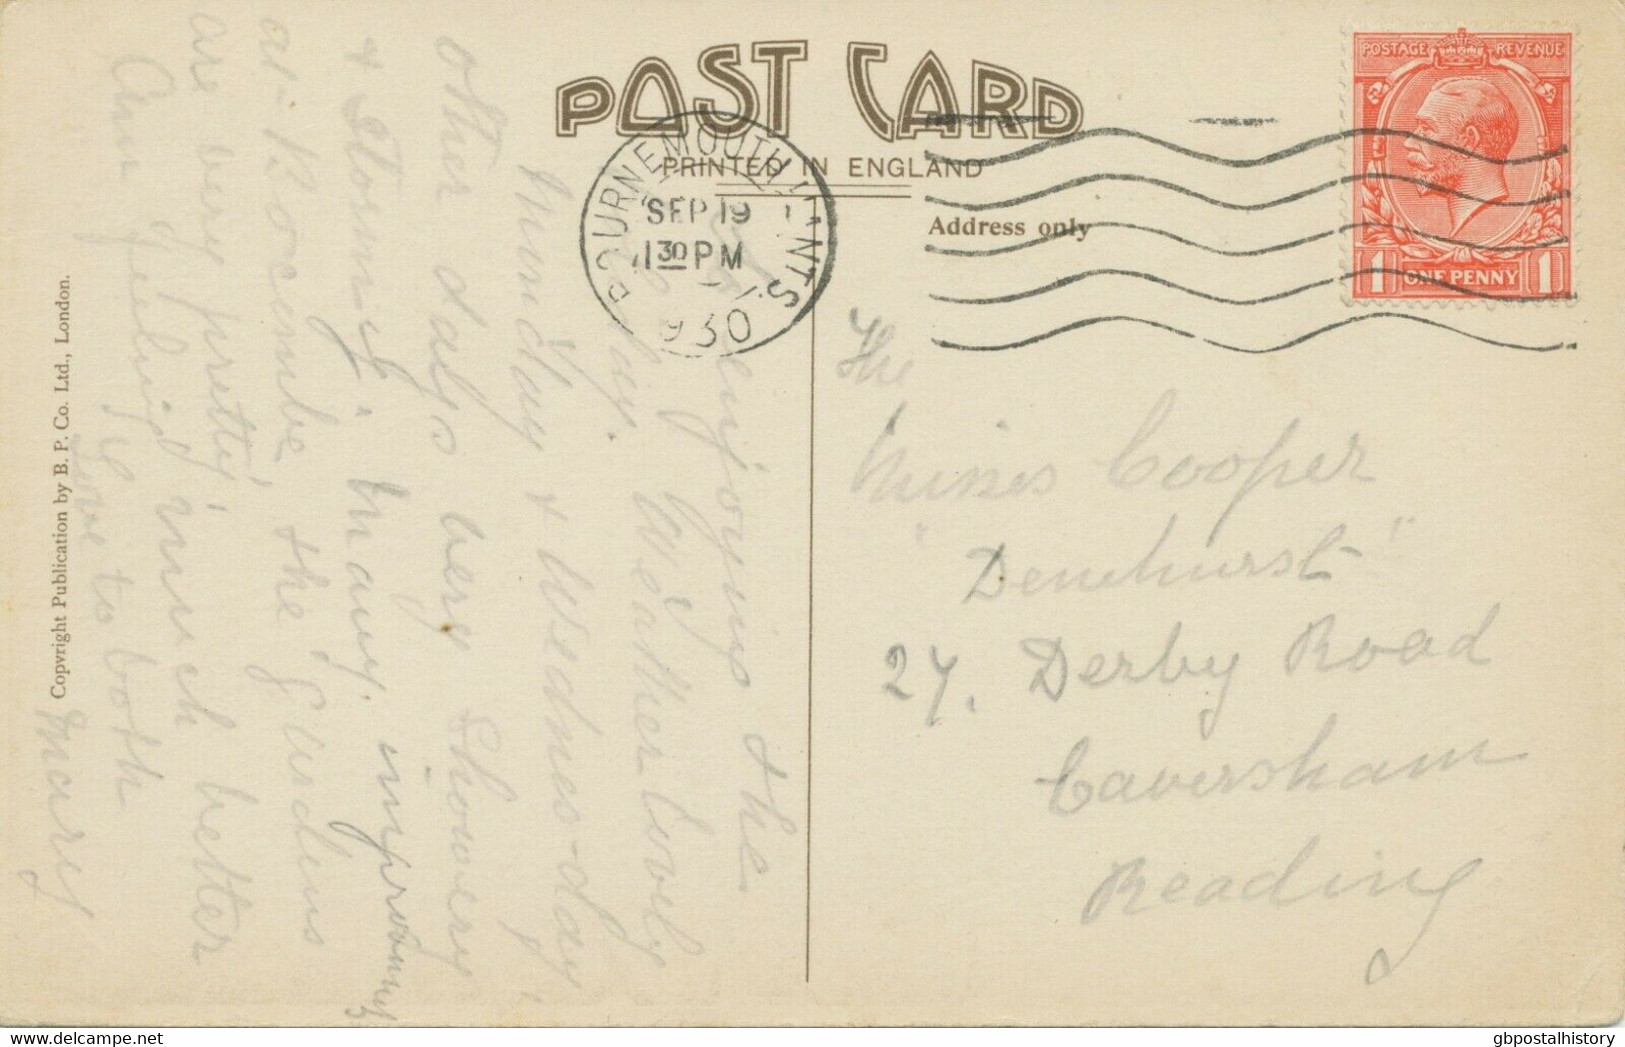 POST CARD
PRINTED IN ENGLAND
Address only
BOURNEMOUTH HANTS
SEP 19
1 30 PM
1930
POSTAGE REVENUE
1 ONE PENNY 1
The
Misses Cooper
"Denehurst"
27. Derby Road
Caversham
Reading
enjoying the
day. Weather lovely
Munday & Wednes-day,
other days very Showery
& Stormy. many improvments
at Boscombe, the gardens
are very pretty,
Am feeling much better
Love to both
Mary
Copyright Publication by B. P. Co. Ltd., London.
© gbpostalhistory